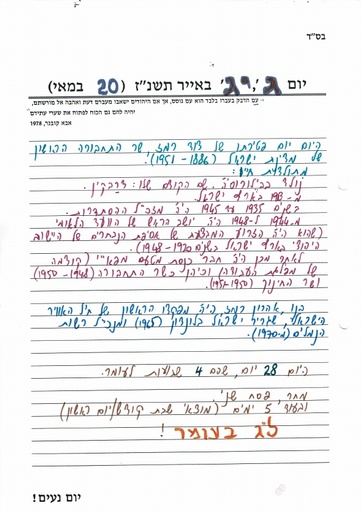 בס"ד
יום ג', י"ג באייר תשנ"ז (20 במאי)
עם הדבק בעברו בלבד הוא עם גוסס, אך אם היהודים ישאבו מעברם דעת ואהבה אל מורשתם,
יהיה להם גם הכוח לפתוח את שערי עתידם
אבא קובנר, 1978
היום יום פטירתו של דוד רמז, שר התחבורה הראשון
של מדינת ישראל (1886-1951).
מתולדות חייו:
נולד בבילורוסיה. שם הקודם שלו: דרבקין.
מ-1913 בארץ ישראל.
בשנים 1935 עד 1945 היה מזכ"ל ההסתדרות.
מ-1944 ל-1948 היה יושב בראש של הוועד הלאומי
(שהוא היה הזרוע המבצעת של אסיפת הנבחרים של היישוב
היהודי בארץ ישראל בשנים 1920-1948).
לאחר מכן היה חבר כנסת מטעם מפא"י (קודמה
של מפלגת העבודה) וכיהן כשר התחבורה (1948-1950)
ושר החינוך (1950-1951).
בנו, אהרון רמז, היה מפקדו הראשון של חיל האוויר
הישראלי, שגריר ישראל בלונדון (1965) ומנכ"ל רשות
הנמלים (מ-1970).
היום 28 יום, שהם 4 שבועות לעומר.
מחר, פסח שני.
ובעוד 5 ימים (מוצאי שבת קודש/יום ראשון)
ל"ג בעומר!
יום נעים!